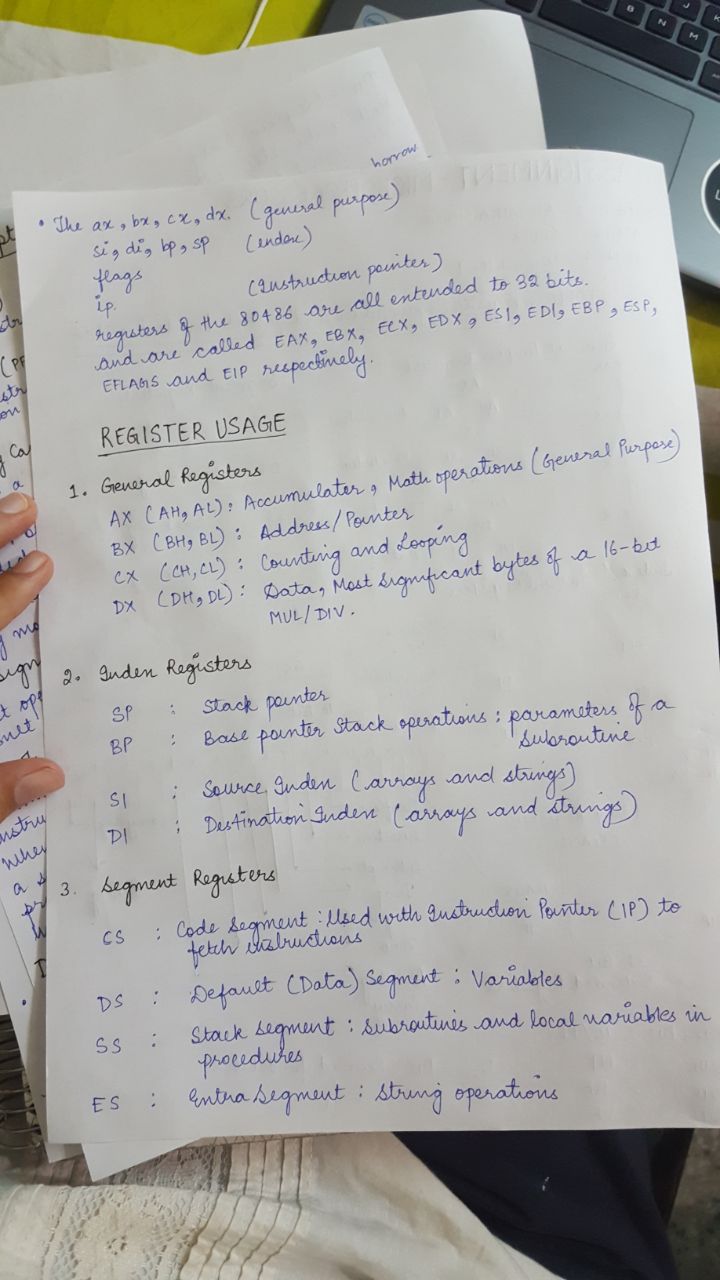 borrow
• The ax, bx, cx, dx. (general purpose)
si, di, bp, sp (index)
flags
ip. (Instruction pointer)
registers of the 80486 are all extended to 32 bits.
and are called EAX, EBX, ECX, EDX, ESI, EDI, EBP, ESP,
EFLAGS and EIP respectively.
REGISTER USAGE
1. General Registers
AX (AH, AL) : Accumulator, Math operations (General Purpose)
BX (BH, BL) : Address/Pointer
CX (CH, CL) : Counting and Looping
DX (DH, DL) : Data, Most significant bytes of a 16-bit
MUL/DIV.
2. Index Registers
SP : Stack pointer
BP : Base pointer Stack operations : parameters of a
Subroutine
SI : Source Index (arrays and strings)
DI : Destination Index (arrays and strings)
3. Segment Registers
CS : Code Segment : Used with Instruction Pointer (IP) to
fetch instructions
DS : Default (Data) Segment : Variables
SS : Stack segment : subroutines and local variables in
procedures
ES : Extra Segment : String operations